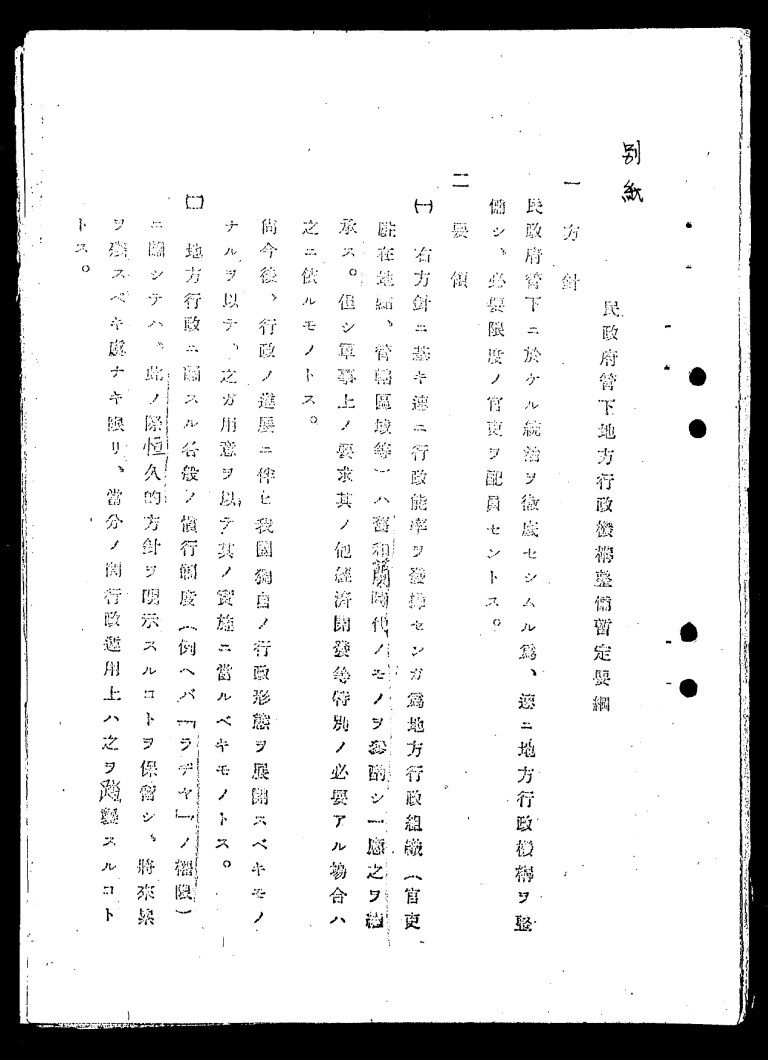 別紙
民政府管下地方行政機構整備暫定要綱
一方針
民政府管下ニ於ケル統治ヲ徹底セシムル爲、速ニ地方行政機構ヲ整
備シ、必要限度ノ官吏ヲ配員セントス。
二要領
(一)右方針ニ基キ速ニ行政能率ヲ發揮センガ爲地方行政組織(官吏
駐在地點、管轄區域等)ハ舊和蘭時代ノモノヲ參酌シ一應之ヲ繼
承ス。但シ軍事上ノ要求其ノ他經済開發等特別ノ必要アル場合ハ
之ニ依ルモノトス。
尚今後、行政ノ進展ニ伴ヒ我國獨自ノ行政形態ヲ展開スベキモノ
ナルヲ以テ、之ガ用意ヲ以テ其ノ實施ニ當ルベキモノトス。
(二)地方行政ニ關スル各般ノ慣行制度(例ヘバ「ラヂヤ」ノ權限)
ニ關シテハ、此ノ際恒久的方針ヲ明示スルコトヲ保留シ、將來累
ヲ及スベキ虞ナキ限リ、當分ノ間行政運用上ハ之ヲ踏襲スルコト
トス。